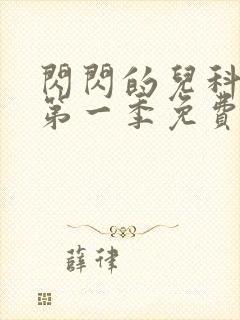 閃閃的兒科
第一季免費
薛律